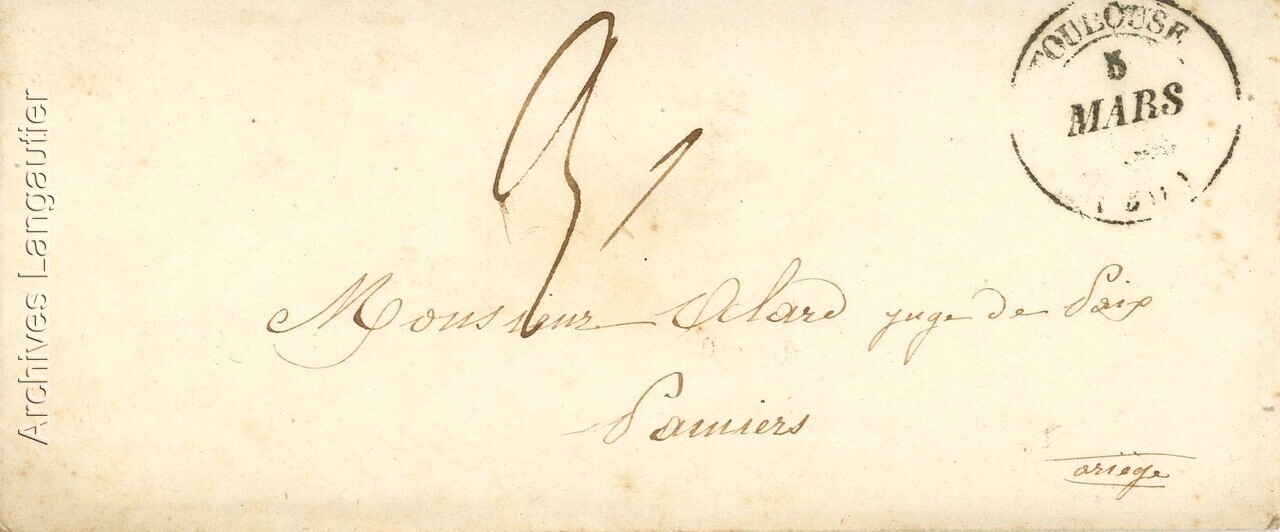 TOULOUSE
5
MARS
3
Monsieur Alard juge de Paix
Pamiers
ariège
Archives Langautier